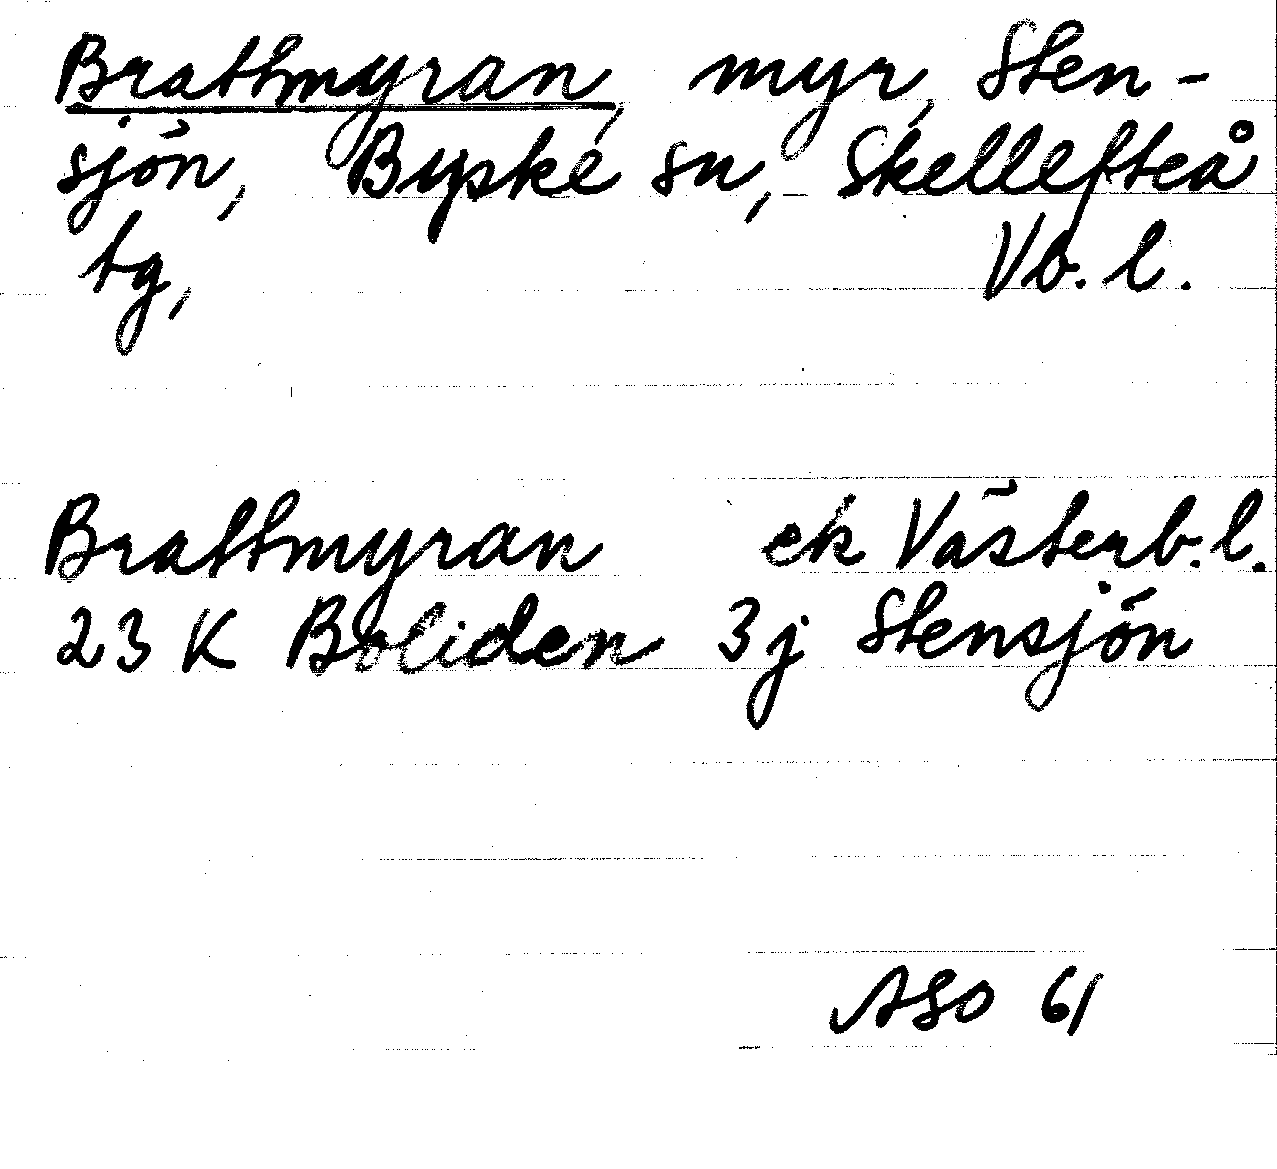 Brattmyran, myr, Sten-
sjön, Byske sn, Skellefteå
tg, Vb. l.
Brattmyran ek Västerb. l.
23 K Boliden 3j Stensjön
ASO 61